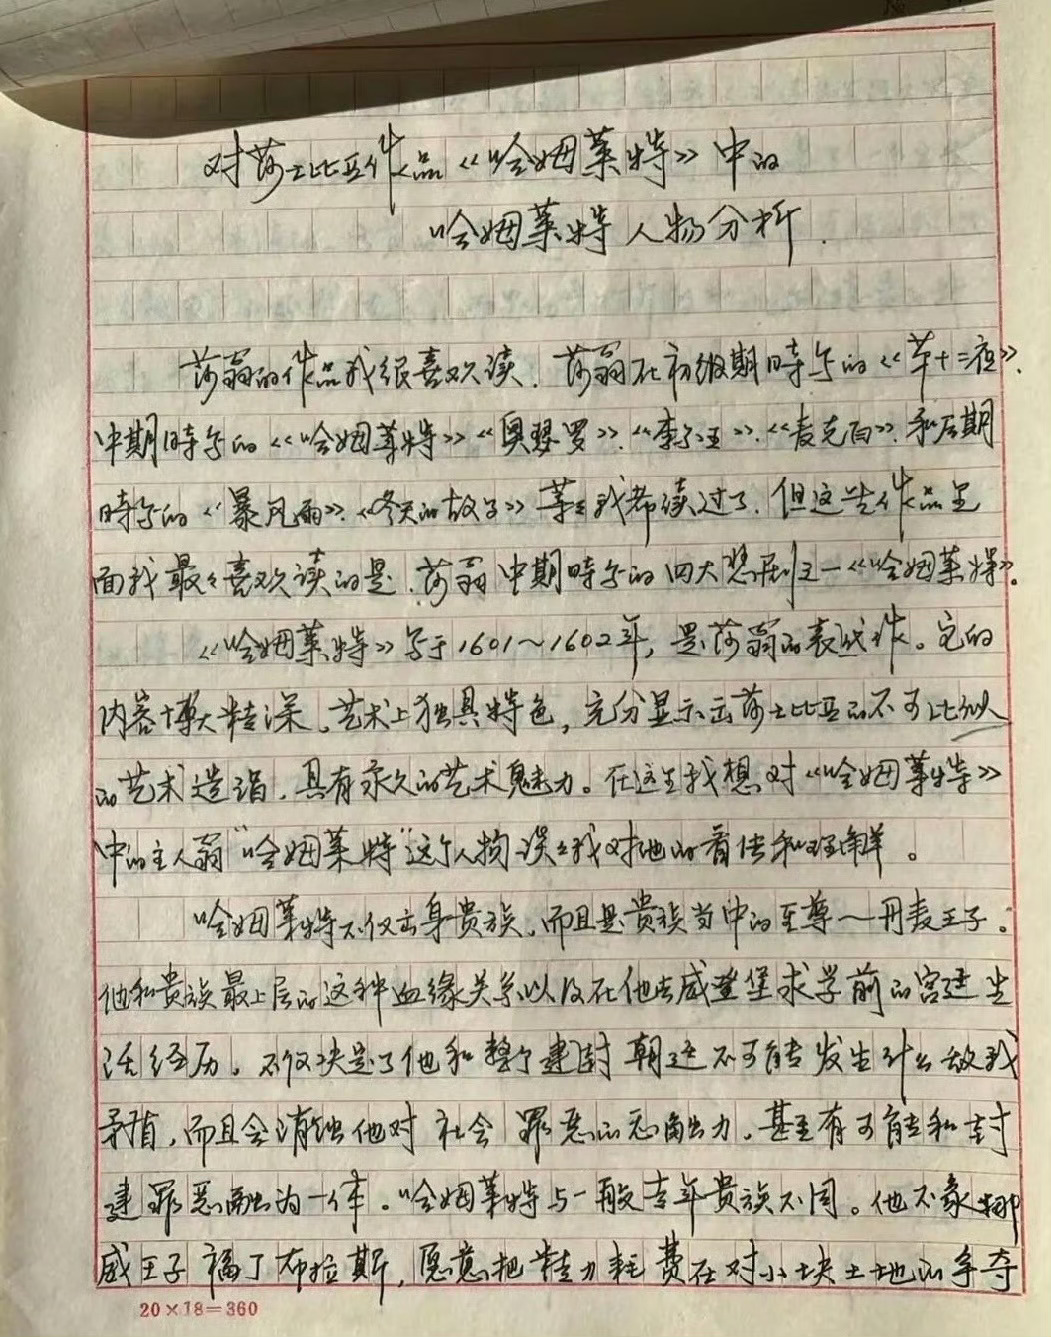 对莎士比亚作品《哈姆莱特》中的
哈姆莱特人物分析.
莎翁的作品我很喜欢读.莎翁在初级期时写的《第十二夜》.
中期时写的《哈姆莱特》《奥瑟罗》.《李尔王》.《麦克白》.和后期
时写的《暴风雨》.《冬天的故事》等等我都读过了.但这些作品里
面我最最喜欢读的是.莎翁中期时写的四大悲剧之一《哈姆莱特》。
《哈姆莱特》写于1601~1602年,是莎翁的表代作。它的
内容博大精深。艺术上独具特色,充分显示出莎士比亚的不可比拟
的艺术造诣.具有永久的艺术魅力。在这里我想对《哈姆莱特》
中的主人翁"哈姆莱特"这个人物谈谈我对他的看法和理解。
哈姆莱特不仅出身贵族.而且是贵族当中的至尊—丹麦王子。
他和贵族最上层的这种血缘关系以及在他去威登堡求学前的宫廷生
活经历。不仅决定了他和整个建封朝廷不可能发生什么敌我
矛盾,而且会消蚀他对社会罪恶的 力.甚至有可能和封
建罪恶融为一体。哈姆莱特与一般青年贵族不同。他不象挪
威王子福丁布拉斯,愿意把精力耗费在对小块土地的争夺
20×18=360